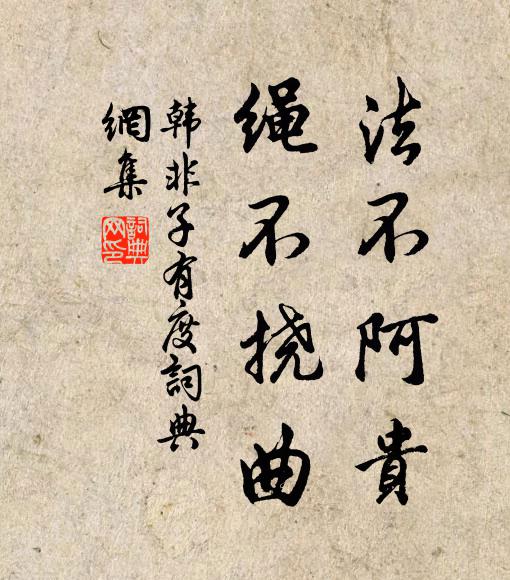 法不阿貴
绳不挠曲
韩非子有度詞典
網集
詞典
网印